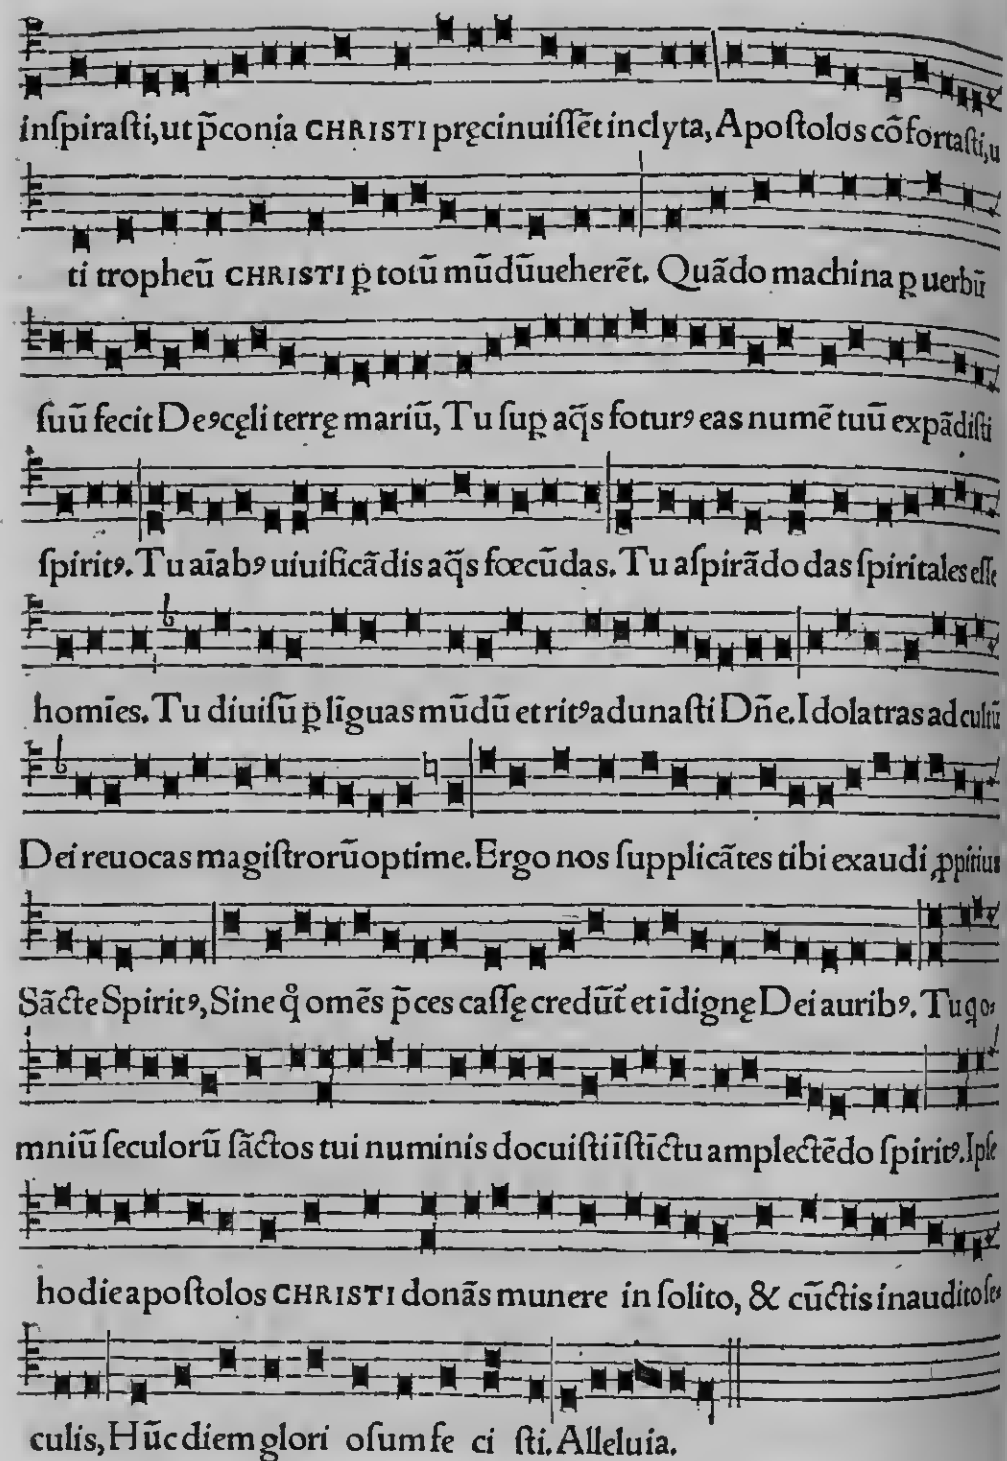 inſpiraſti, ut p̄conia CHRISTI pręcinuiſſēt inclyta, Apoſtolos cōfortaſti, u
ti tropheū CHRISTI ꝑ totū mūdū ueherēt. Quādo machina ꝑ uerbū
ſuū fecit Deꝰ cęli terrę mariū, Tu ſuꝑ aq̄s foturꝰ eas numē tuū expādiſti
ſpiritꝰ. Tu aīabꝰ uiuificādis aq̄s fœcūdas. Tu aſpirādo das ſpiritales eſſe
homīes. Tu diuiſū ꝑ līguas mūdū et ritꝰ adunaſti Dn̄e. Idolatras ad cultū
Dei reuocas magiſtrorū optime. Ergo nos ſupplicātes tibi exaudi ꝓpitius
Sācte Spiritꝰ, Sine qͦ omēs p̄ces caſſę credūt̄ et īdignę Dei auribꝰ. Tu q o-
mniū ſeculorū ſāctos tui numinis docuiſti īſtīctu amplectēdo ſpiritꝰ. Ipſe
hodie apoſtolos CHRISTI donās munere in ſolito, & cūctis inaudito ſe-
culis, Hūc diem glori oſum fe ci ſti. Alleluia.